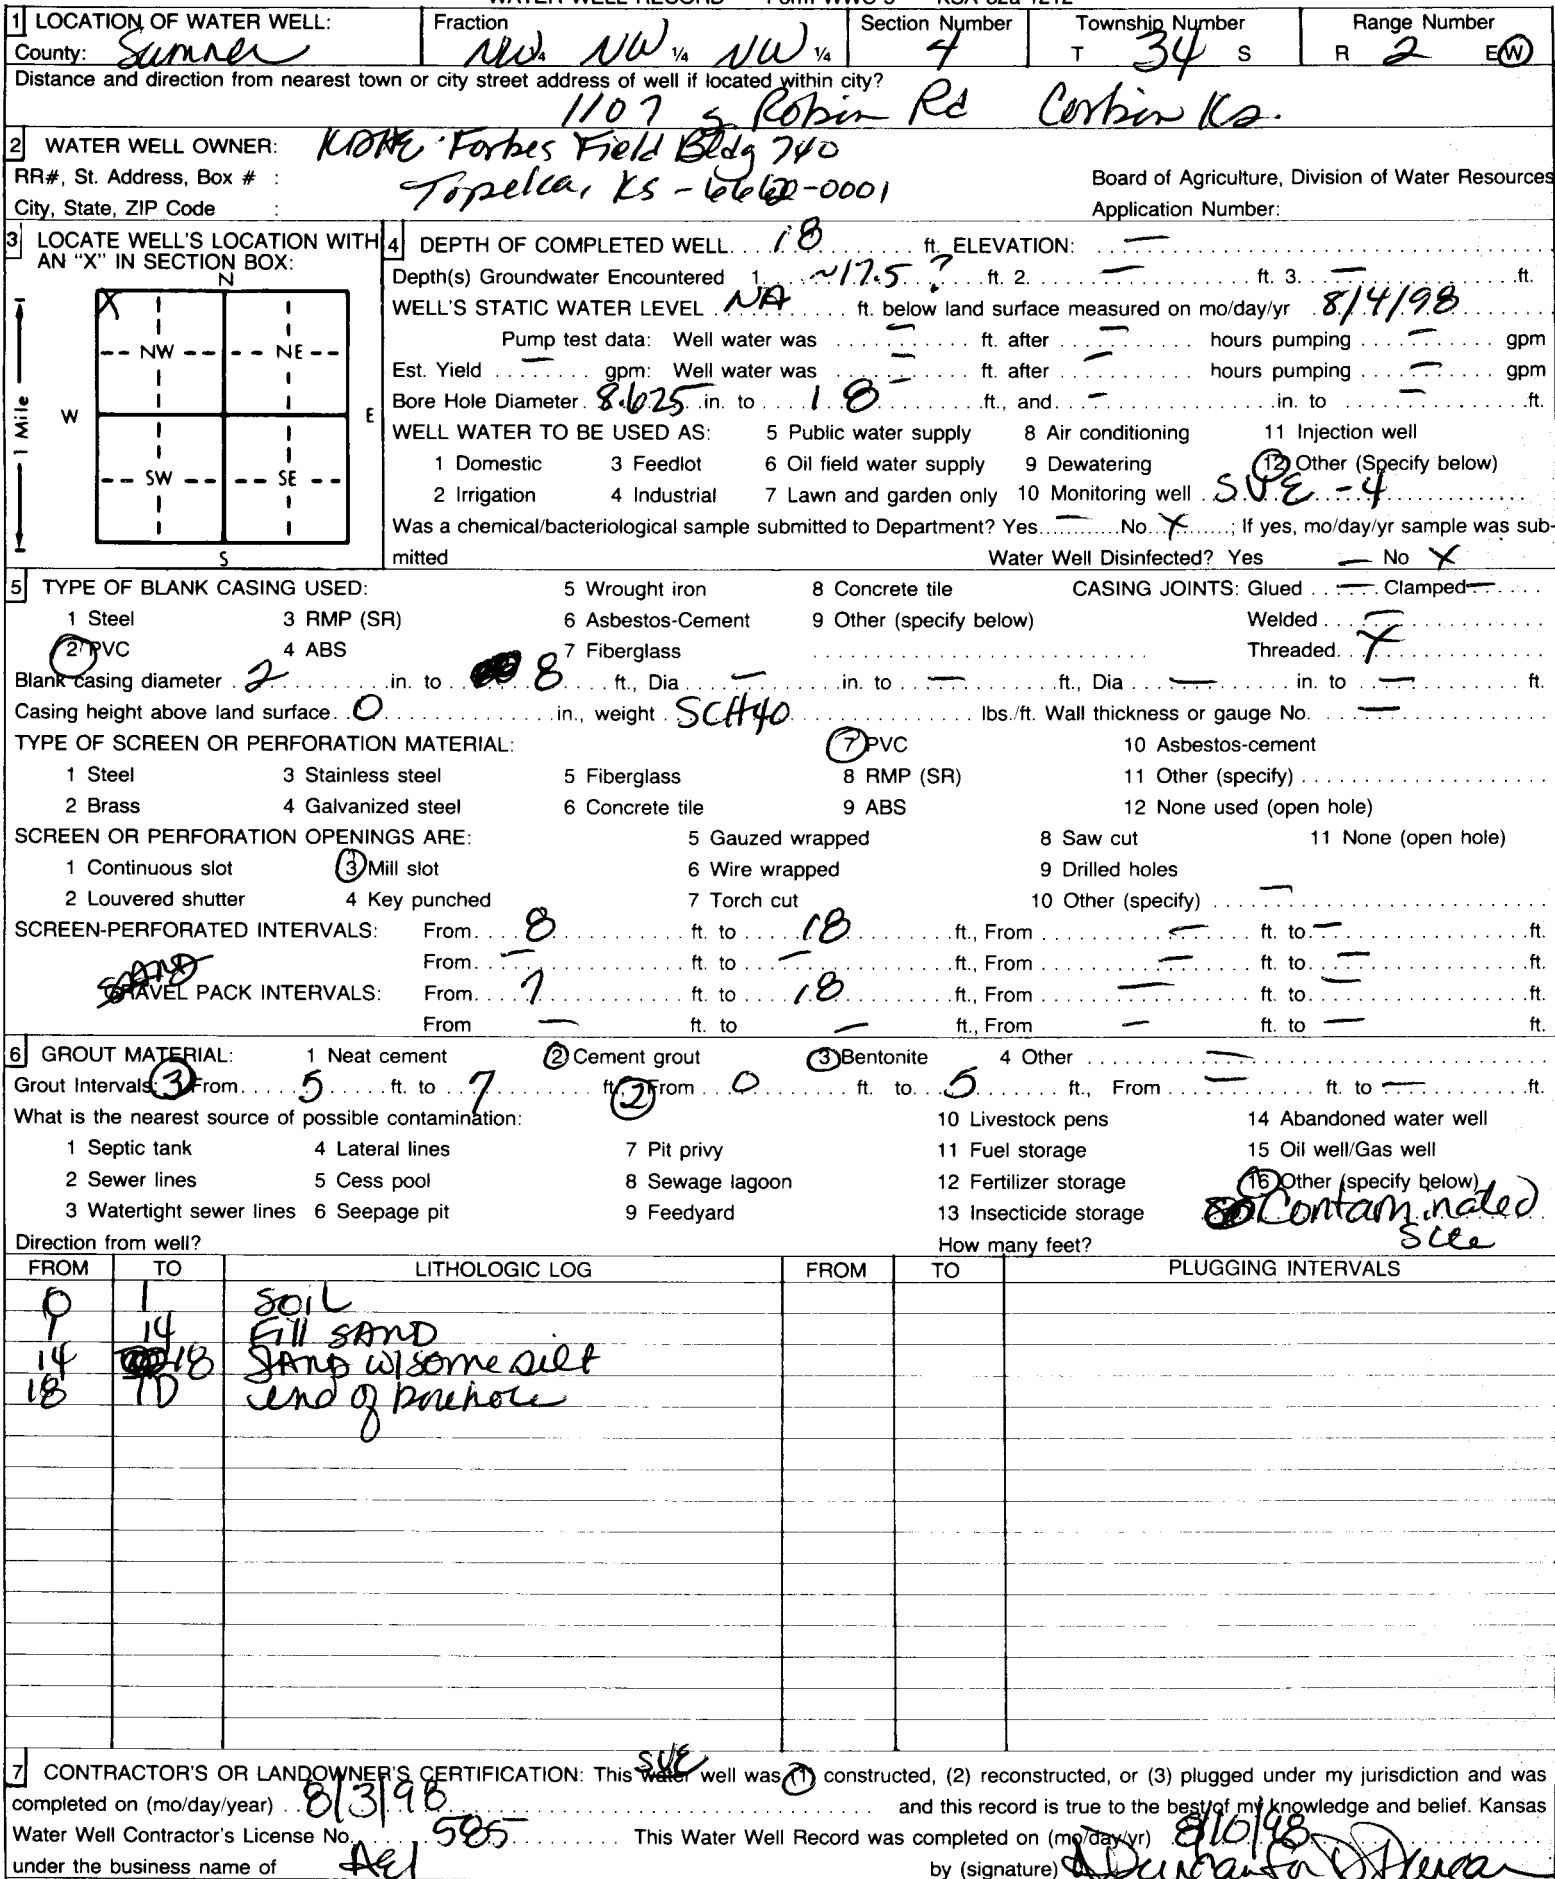 WATER WELL RECORD Form WWC-5 KSA 82a-1212
1 LOCATION OF WATER WELL: Fraction Section Number Township Number Range Number
County: Sumner NW ¼ NW ¼ NW ¼ 4 T 34 S R 2 E(W)
Distance and direction from nearest town or city street address of well if located within city?
1107 S Robin Rd Corbin Ks.
2 WATER WELL OWNER: KDHE Forbes Field Bldg 740
RR#, St. Address, Box # : Topeka, KS - 66620-0001 Board of Agriculture, Division of Water Resources
City, State, ZIP Code : Application Number:
3 LOCATE WELL'S LOCATION WITH AN "X" IN SECTION BOX:
N
X
NW NE
W E
SW SE
S
1 Mile
4 DEPTH OF COMPLETED WELL 18 ft. ELEVATION: —
Depth(s) Groundwater Encountered 1. ~17.5 ? ft. 2. — ft. 3. — ft.
WELL'S STATIC WATER LEVEL NA ft. below land surface measured on mo/day/yr 8/4/98
Pump test data: Well water was — ft. after — hours pumping — gpm
Est. Yield — gpm: Well water was — ft. after — hours pumping — gpm
Bore Hole Diameter 8.625 in. to 18 ft., and — in. to — ft.
WELL WATER TO BE USED AS: 5 Public water supply 8 Air conditioning 11 Injection well
1 Domestic 3 Feedlot 6 Oil field water supply 9 Dewatering (12) Other (Specify below)
2 Irrigation 4 Industrial 7 Lawn and garden only 10 Monitoring well SVE -4
Was a chemical/bacteriological sample submitted to Department? Yes — No X; If yes, mo/day/yr sample was sub-
mitted Water Well Disinfected? Yes — No X
5 TYPE OF BLANK CASING USED: 5 Wrought iron 8 Concrete tile CASING JOINTS: Glued — Clamped —
1 Steel 3 RMP (SR) 6 Asbestos-Cement 9 Other (specify below) Welded —
(2) PVC 4 ABS 7 Fiberglass Threaded X
Blank casing diameter 2 in. to 8 ft., Dia — in. to — ft., Dia — in. to — ft.
Casing height above land surface 0 in., weight SCH40 lbs./ft. Wall thickness or gauge No. —
TYPE OF SCREEN OR PERFORATION MATERIAL: (7) PVC 10 Asbestos-cement
1 Steel 3 Stainless steel 5 Fiberglass 8 RMP (SR) 11 Other (specify)
2 Brass 4 Galvanized steel 6 Concrete tile 9 ABS 12 None used (open hole)
SCREEN OR PERFORATION OPENINGS ARE: 5 Gauzed wrapped 8 Saw cut 11 None (open hole)
1 Continuous slot (3) Mill slot 6 Wire wrapped 9 Drilled holes
2 Louvered shutter 4 Key punched 7 Torch cut 10 Other (specify) —
SCREEN-PERFORATED INTERVALS: From 8 ft. to 18 ft., From — ft. to — ft.
From — ft. to — ft., From — ft. to — ft.
SAND
GRAVEL PACK INTERVALS: From 7 ft. to 18 ft., From — ft. to — ft.
From — ft. to — ft., From — ft. to — ft.
6 GROUT MATERIAL: 1 Neat cement (2) Cement grout (3) Bentonite 4 Other —
Grout Intervals: (3) From 5 ft. to 7 ft. (2) From 0 ft. to 5 ft., From — ft. to — ft.
What is the nearest source of possible contamination: 10 Livestock pens 14 Abandoned water well
1 Septic tank 4 Lateral lines 7 Pit privy 11 Fuel storage 15 Oil well/Gas well
2 Sewer lines 5 Cess pool 8 Sewage lagoon 12 Fertilizer storage (16) Other (specify below)
3 Watertight sewer lines 6 Seepage pit 9 Feedyard 13 Insecticide storage Contaminated
Direction from well? How many feet? Site
FROM TO LITHOLOGIC LOG FROM TO PLUGGING INTERVALS
0 1 SOIL
1 14 Fill SAND
14 18 SAND w/some silt
18 TD end of borehole
7 CONTRACTOR'S OR LANDOWNER'S CERTIFICATION: This SVE water well was (1) constructed, (2) reconstructed, or (3) plugged under my jurisdiction and was
completed on (mo/day/year) 8/3/98 and this record is true to the best of my knowledge and belief. Kansas
Water Well Contractor's License No. 585 This Water Well Record was completed on (mo/day/yr) 8/10/98
under the business name of AEI by (signature)